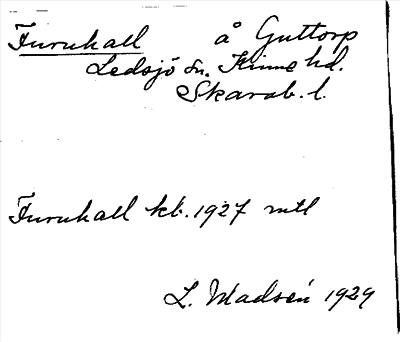 Furuhall å Guttorp
Ledsjö sn. Kinne hd.
Skarab. l.
Furuhall kb. 1927 mtl
L. Madsén 1929